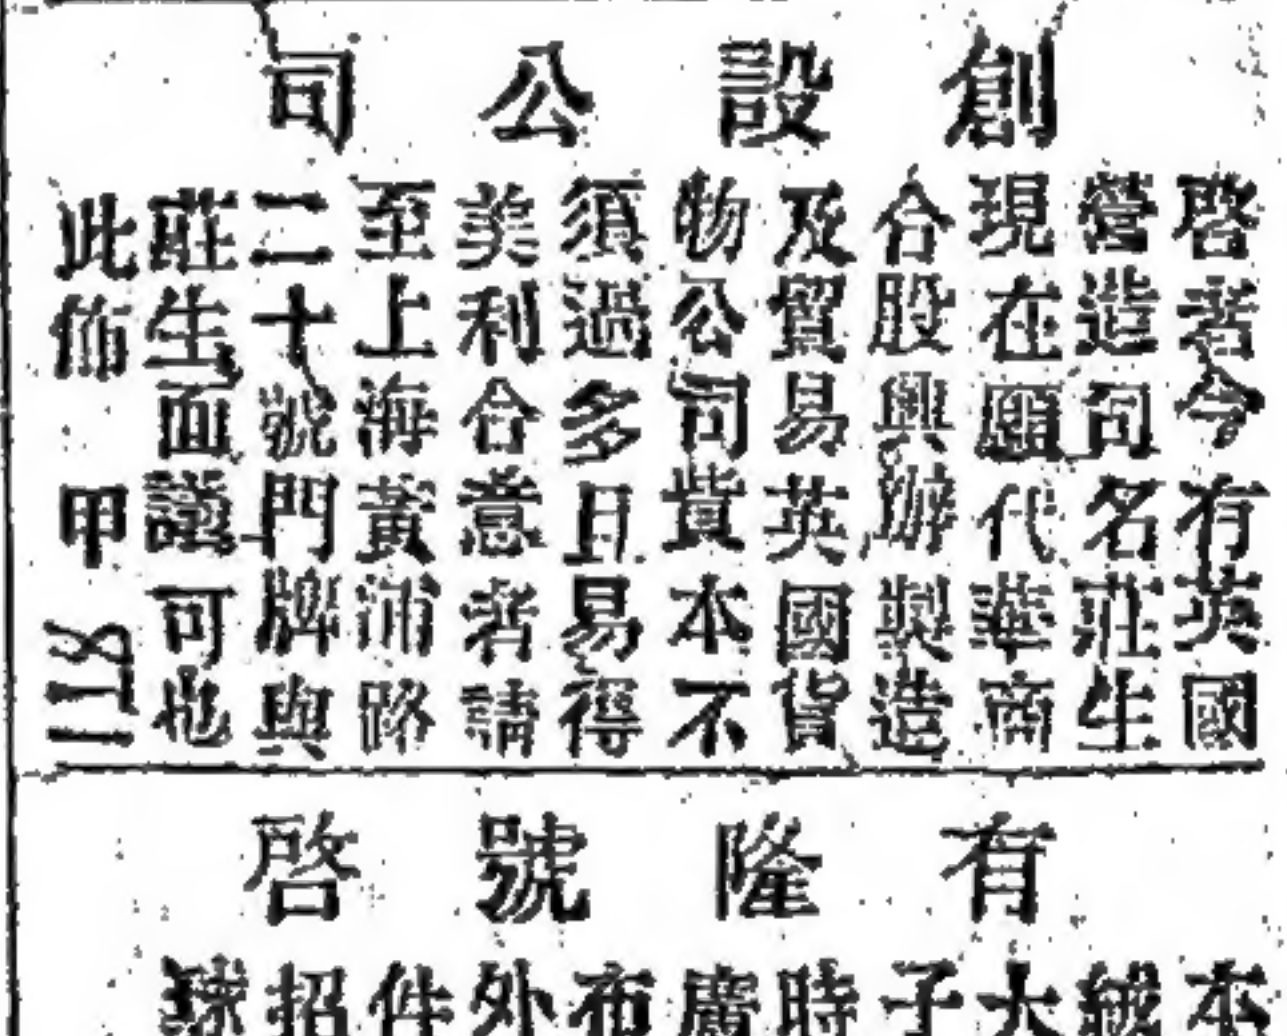 創設公司
啓者今有英國
營造司名莊生
現在願代華商
合股興辦製造
及貿易英國貨
物公司貲本不
須過多且易得
美利合意者請
至上海黃浦路
二十號門牌與
莊生面議可也
此佈 甲
有隆號啓
本
絨
大
子
時
廣
布
外
件
招